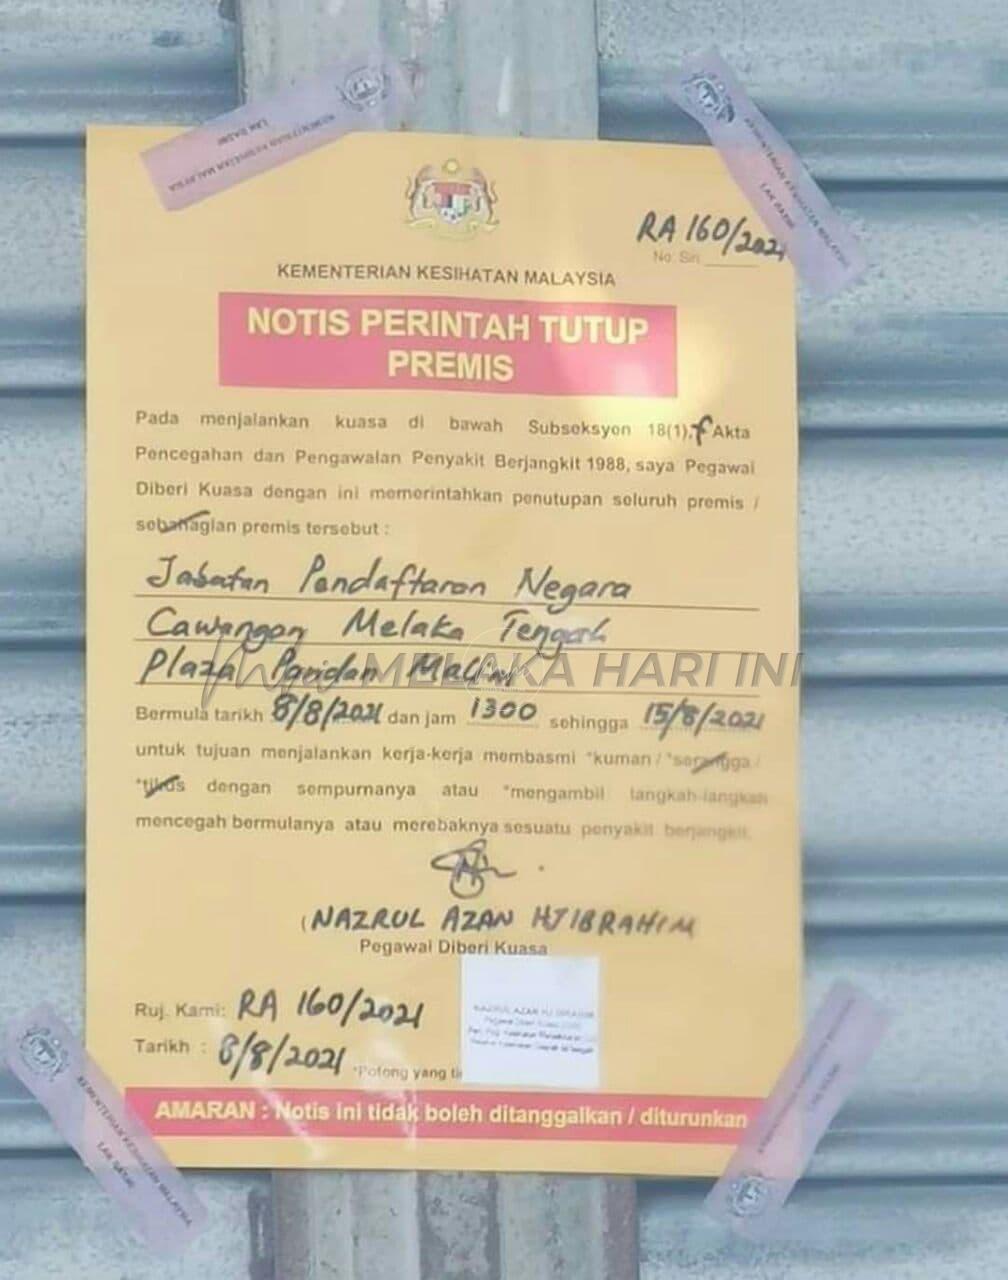 KEMENTERIAN KESIHATAN MALAYSIA
LAK RASMI
KEMENTERIAN KESIHATAN MALAYSIA
LAK RASMI
RA 160/2021
No. Siri
KEMENTERIAN KESIHATAN MALAYSIA
NOTIS PERINTAH TUTUP
PREMIS
Pada menjalankan kuasa di bawah Subseksyon 18(1),f Akta
Pencegahan dan Pengawalan Penyakit Berjangkit 1988, saya Pegawai
Diberi Kuasa dengan ini memerintahkan penutupan seluruh premis /
sebahagian premis tersebut :
Jabatan Pendaftaran Negara
Cawangan Melaka Tengah
Plaza Pandan Malim
MELAKA HARI INI
Bermula tarikh 8/8/2021 dan jam 1300 sehingga 15/8/2021
untuk tujuan menjalankan kerja-kerja membasmi *kuman / *serangga /
*tikus dengan sempurnanya atau *mengambil langkah-langkah
mencegah bermulanya atau merebaknya sesuatu penyakit berjangkit.
(NAZRUL AZAN HJ IBRAHIM
Pegawai Diberi Kuasa
NAZRUL AZAN HJ IBRAHIM
Ruj. Kami: RA 160/2021
Tarikh : 8/8/2021
*Potong yang
AMARAN : Notis ini tidak boleh ditanggalkan / diturunkan
KEMENTERIAN KESIHATAN MALAYSIA
LAK RASMI